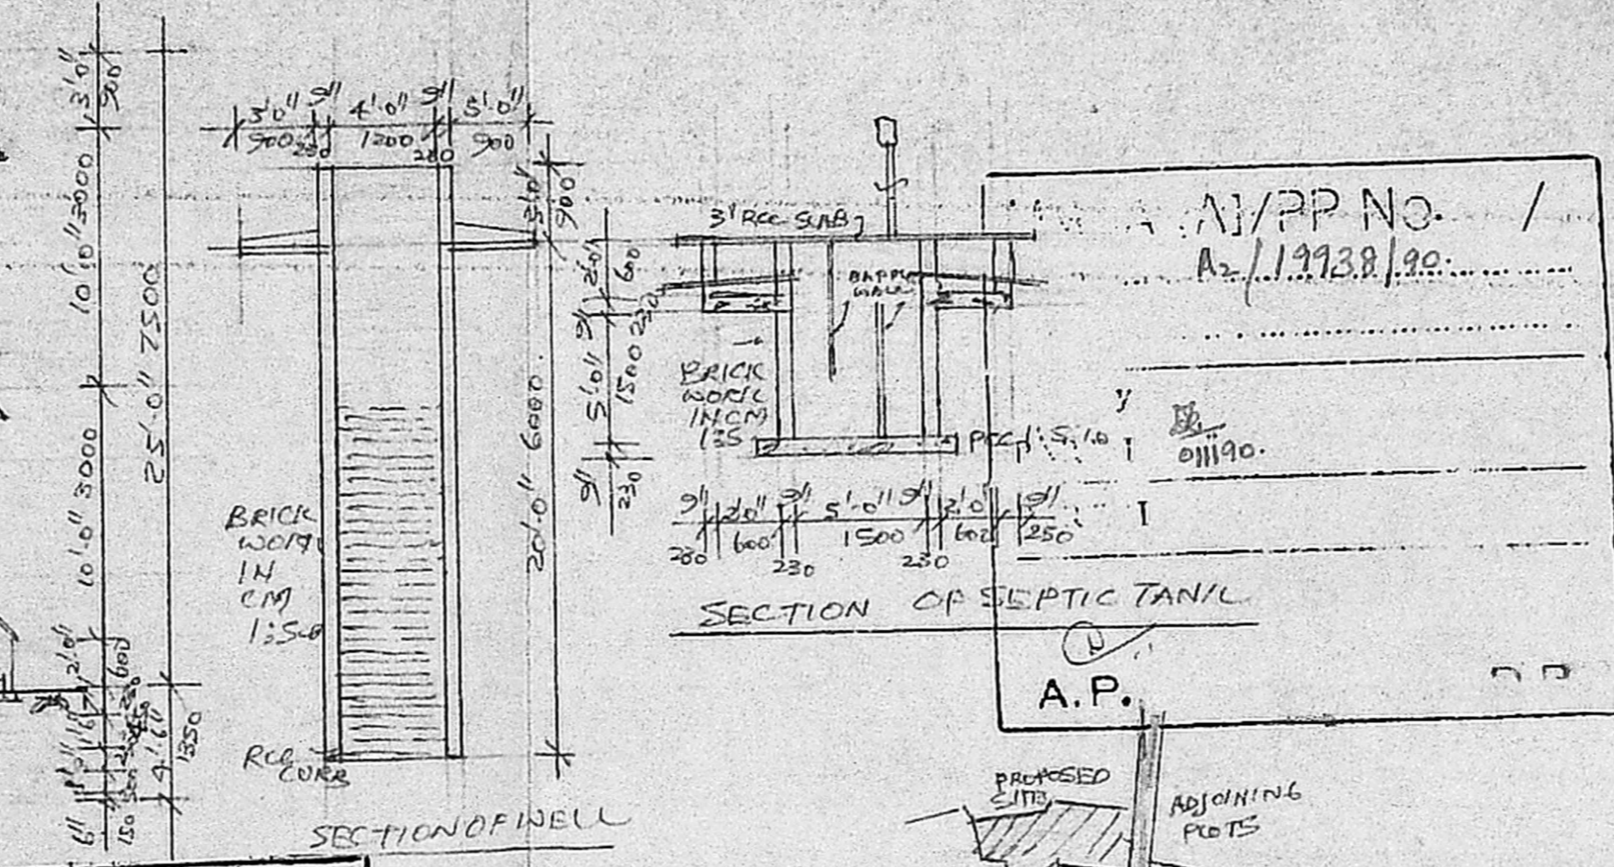 3'0"
900
10'0" 3000
25'-0" 7500
10'0" 3000
2'0"
600
4'-6"
1350
6"
150
3'0" 9" 4'-0" 9" 3'-0"
900 230 1200 230 900
3'0"
900
20'-0" 6000.
BRICK
WORK
IN
CM
RCC
CURB
SECTION OF WELL
3" RCC SLAB
BAFFLE
WALL
2'0"
600
9"
230
5'0"
1500
9"
230
BRICK
WORK
IN CM
1:5
PCC
9" 2'0" 9" 5'-0" 9" 2'0" 9"
230 600 230 1500 230 600 250
SECTION OF SEPTIC TANK
/PP NO. /
A2/19938/90.
011190.
A.P.
PROPOSED
SITE
ADJOINING
PLOTS